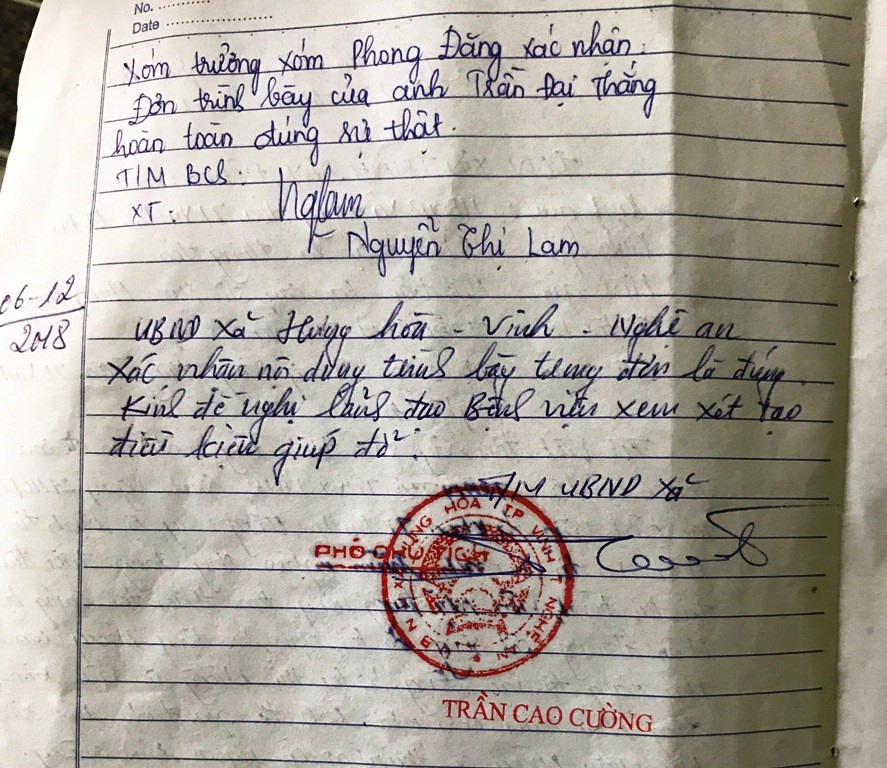 No. ................
Date ........................
Xóm trưởng xóm Phong Đăng xác nhận.
Đơn trình bày của anh Trần Đại Thắng
hoàn toàn đúng sự thật.
T/M BCS.
XT: Nglam
Nguyễn Thị Lam
06-12
2018
UBND Xã Hưng hoà - Vinh - Nghệ an
Xác nhận nội dung trình bày trong đơn là đúng.
Kính đề nghị lãnh đạo Bệnh viện xem xét tạo
điều kiện giúp đỡ.
T/M UBND Xã
PHÓ CHỦ TỊCH
U.B.N.D XÃ HƯNG HÒA T.P VINH T. NGHỆ AN
TRẦN CAO CƯỜNG